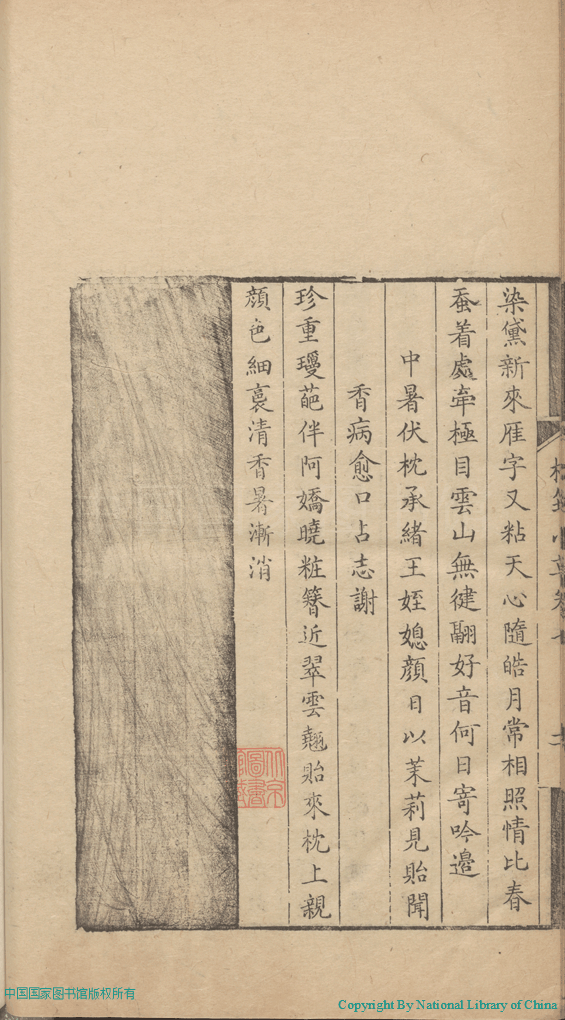 染黛新來雁字又粘天心隨皓月常相照情比春
蚕着處牽極目雲山無健翮好音何日寄吟邉
中暑伏枕承緒王姪媳顔日以茉莉見貽聞
香病愈口占志謝
珍重瓊葩伴阿嬌曉粧簪近翠雲翹貽來枕上親
顔色細裛清香暑漸消
中国国家图书馆版权所有
Copyright By National Library of China